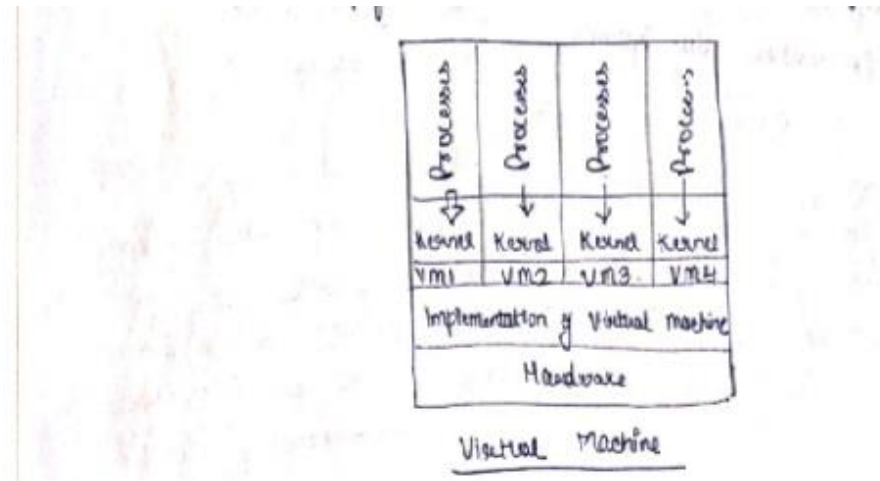 Processes Processes Processes Process
Kernel Kernel Kernel Kernel
VM1 VM2 VM3. VM4
Implementation of Virtual machine
Hardware
Virtual Machine